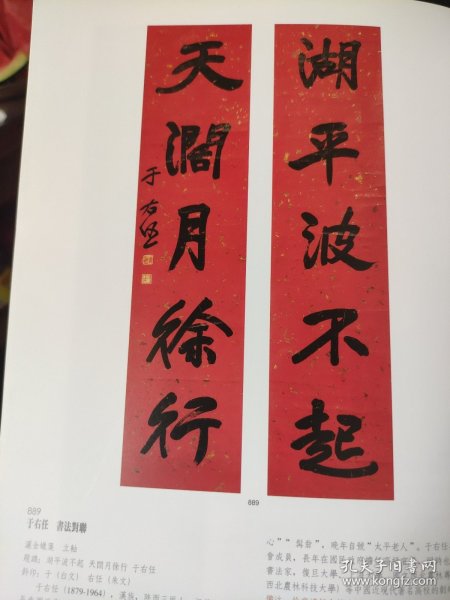 湖平波不起
天濶月徐行
于右任
689
689
于右任 書法對聯
灑金蠟箋 立軸
題識：湖平波不起 天濶月徐行 于右任
鈐印：于（白文） 右任（朱文）
于右任（1879-1964），漢族，陝西三原人，
心”“與君”，晚年自號“太平老人”。于右任
會成員，長年在國民政府
西北農林科技大學）等中國近現代著名高校的創
孔夫子旧书网